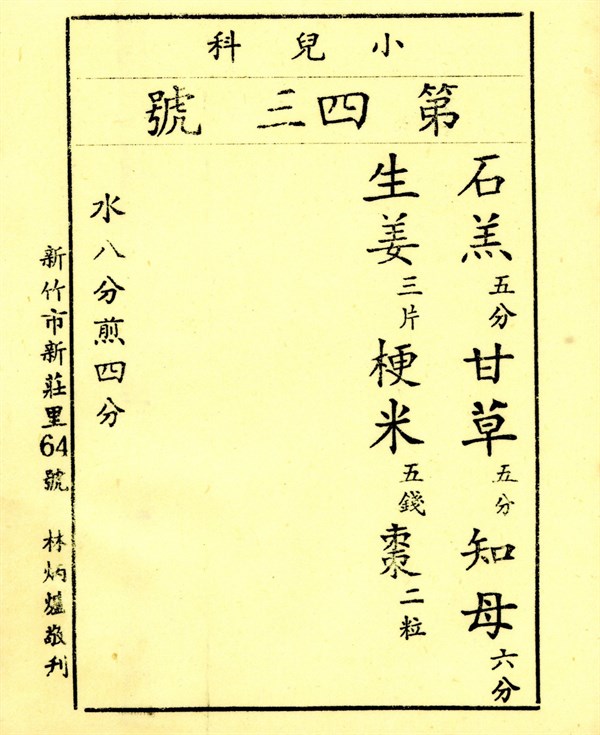 小兒科
第四三號
石羔五分甘草五分知母六分
生姜三片梗米五錢棗二粒
水八分煎四分
新竹市新莊里64號 林炳爐敬利